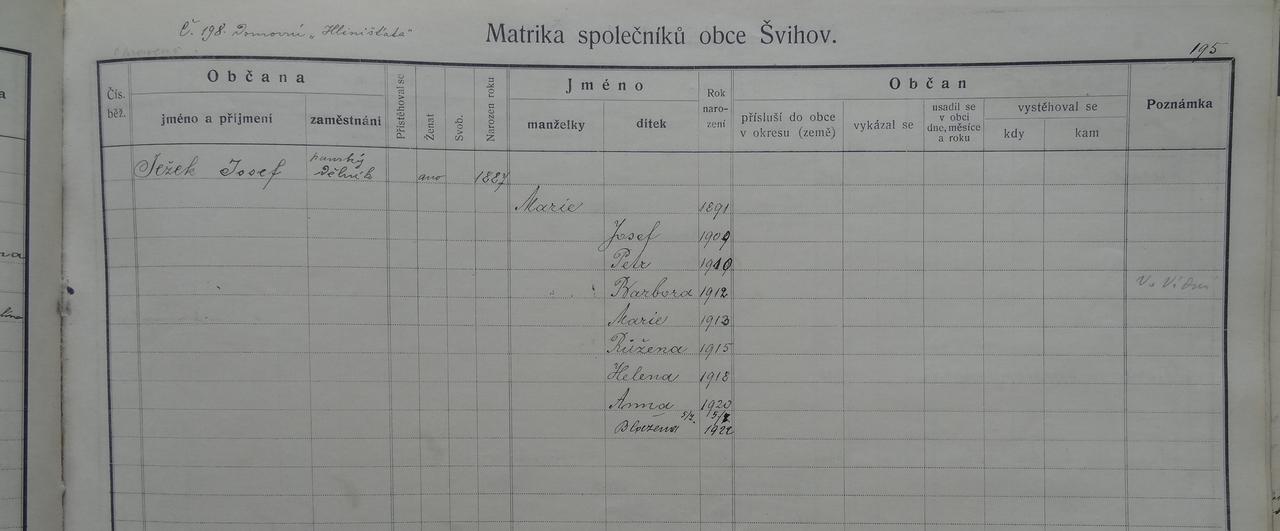 Č. 198. Domovní „Hliništata"
Matrika společníků obce Švihov.
195
Čís. běž.
Občana
jméno a příjmení
zaměstnání
Přistěhoval se
Ženat
Svob.
Narozen roku
Jméno
manželky
dítek
Rok naro-zení
Občan
přísluší do obce v okresu (země)
vykázal se
usadil se v obci dne, měsíce a roku
vystěhoval se
kdy
kam
Poznámka
Ježek Josef panský dělník ano 1887
Marie 1891
Josef 1909
Petr 1910
Barbora 1912 Ve Vídni
Marie 1913
Růžena 1915
Helena 1918
Anna 1920
Blažena 5/7. 5/7 1922